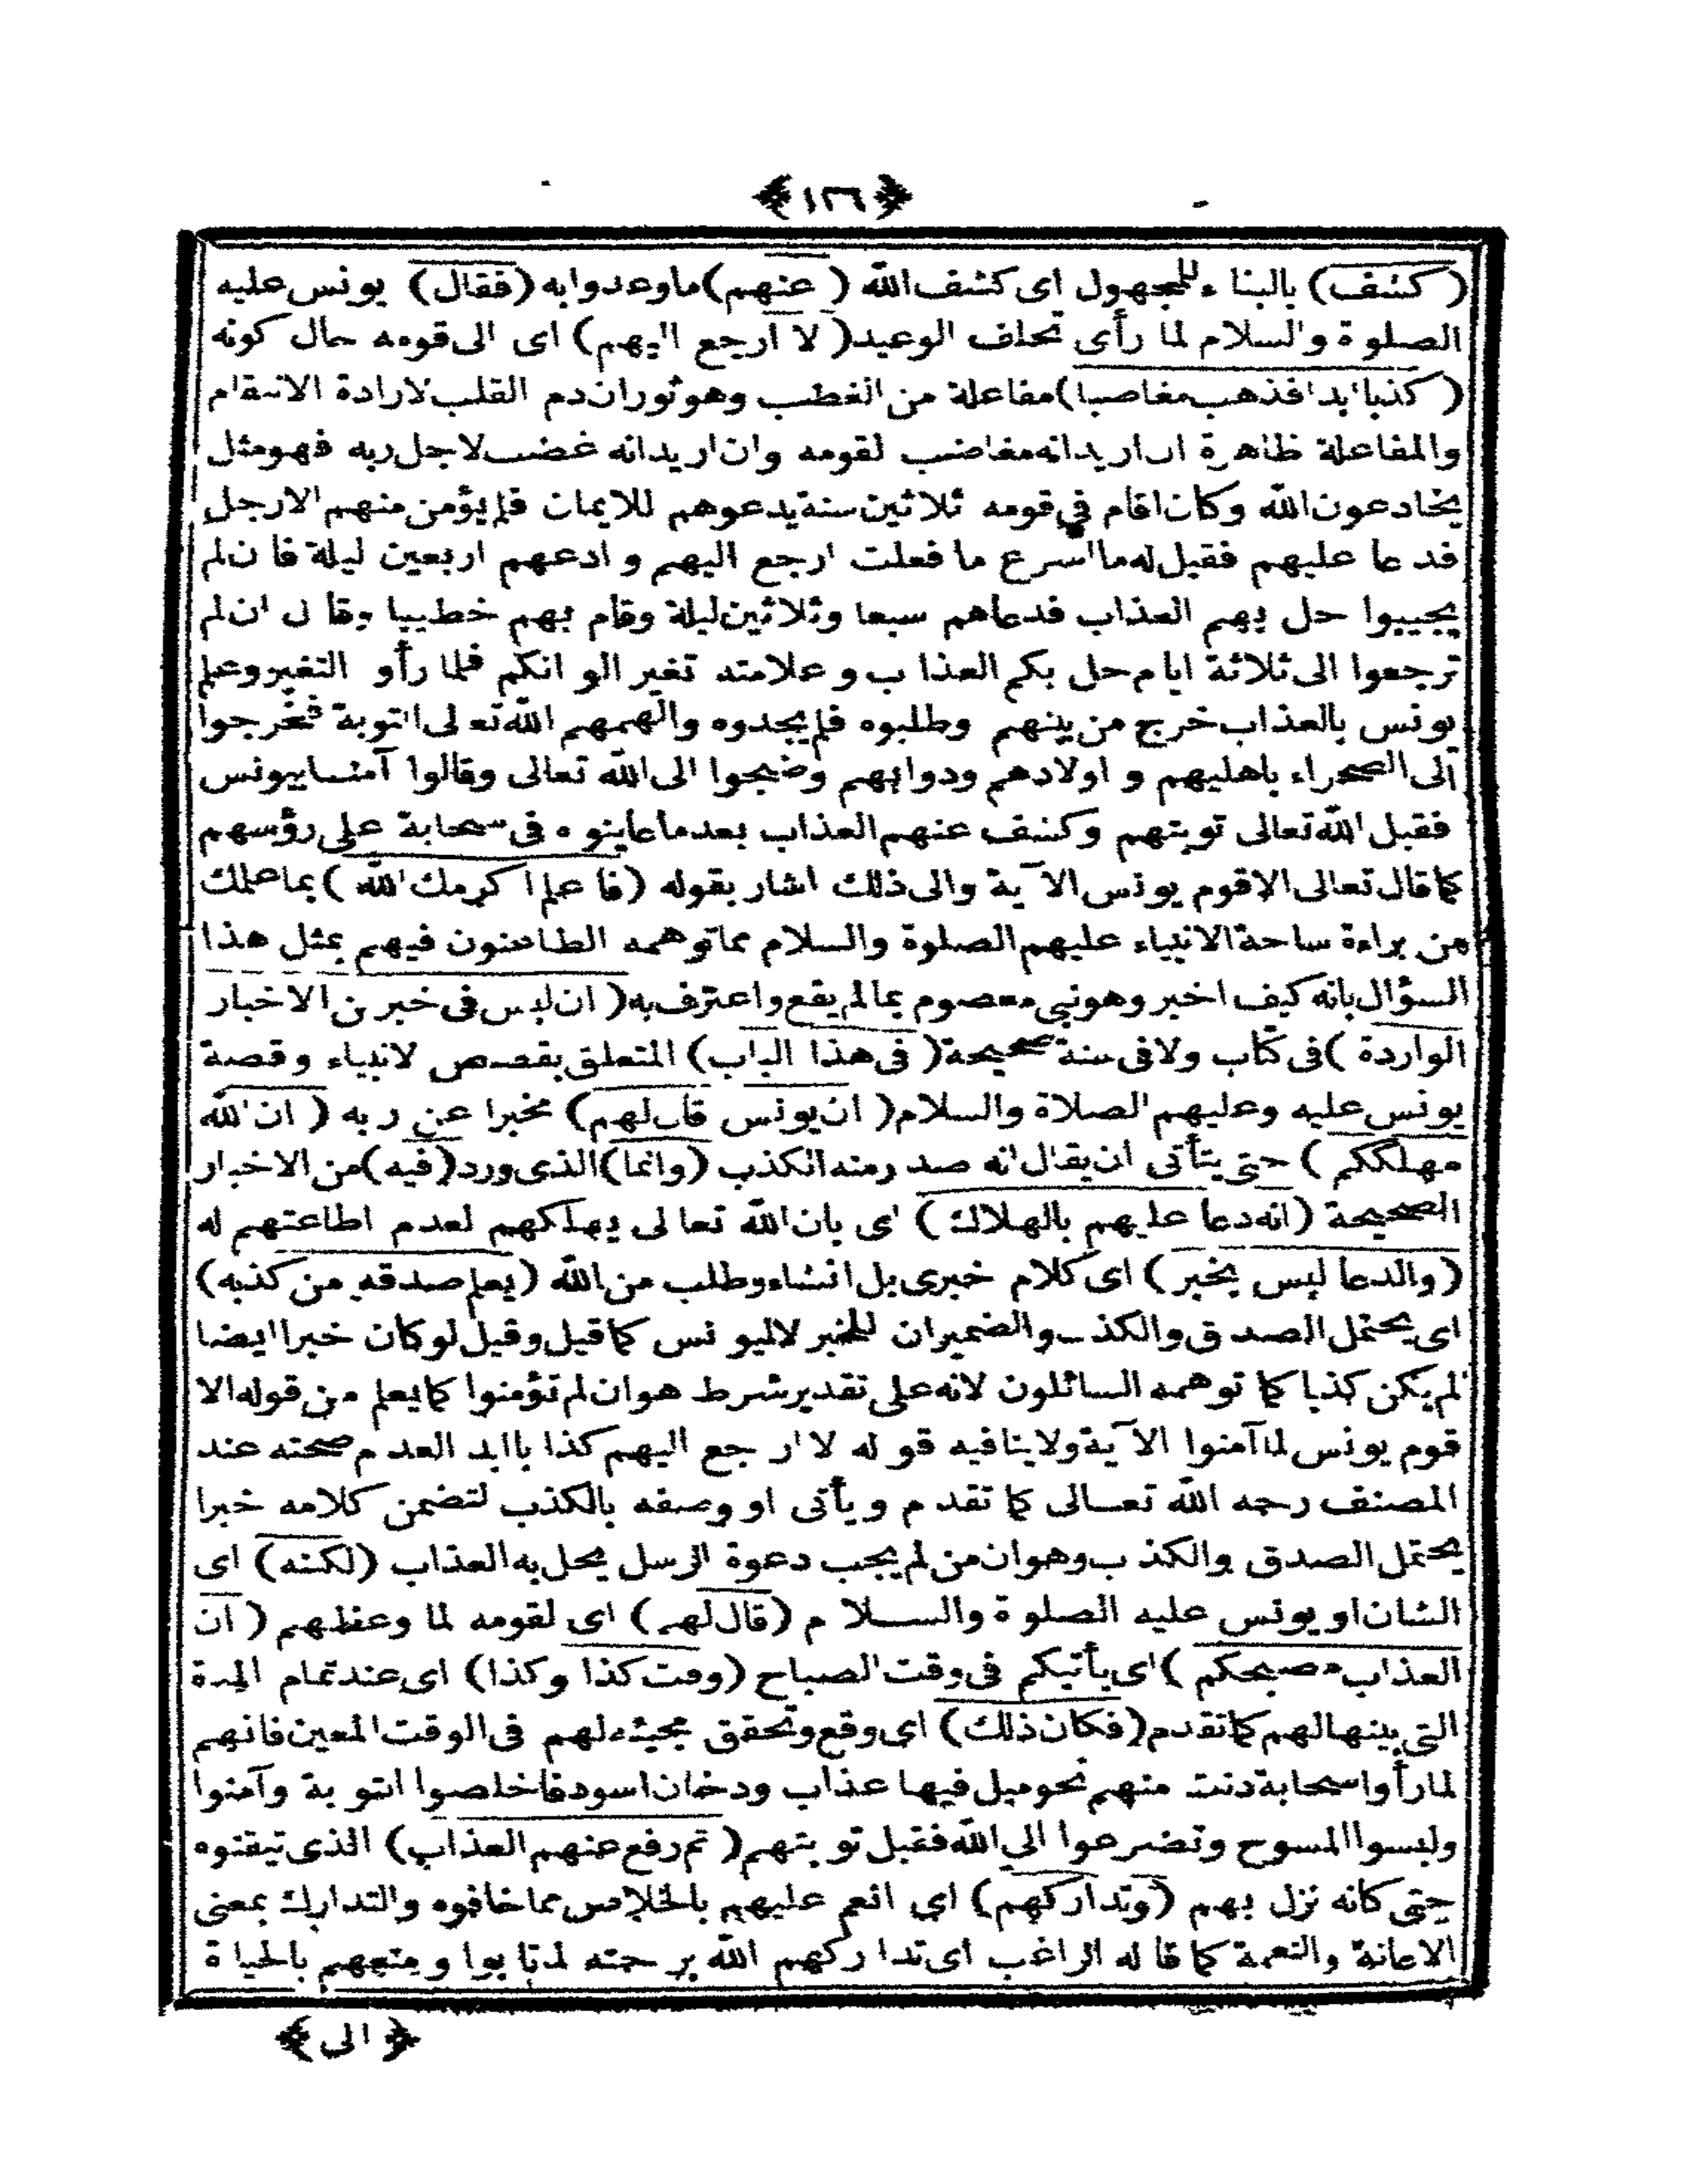 ﴿١٢٦﴾
(كشف) بالبناء للمجهول اى كشف الله (عنهم) ما وعدوا به (فقال) يونس عليه
الصلوة والسلام لما رأى تخلف الوعيد (لا ارجع اليهم) اى الى قومه حال كونه
(كذبا ابدا فذهب مغاضبا) مفاعلة من الغضب وهو ثوران دم القلب لارادة الانتقام
والمفاعلة ظاهرة ان اريد انه مغاضب لقومه وان اريد انه غضب لاجل ربه فهو مثل
يخادعون الله وكان اقام فى قومه ثلاثين سنة يدعوهم للايمان فلم يؤمن منهم الا رجل
فدعا عليهم فقيل له ما اسرع ما فعلت ارجع اليهم وادعهم اربعين ليلة فان لم
يجيبوا حل بهم العذاب فدعاهم سبعا وثلاثين ليلة وقام بهم خطيبا وقال ان لم
ترجعوا الى ثلاثة ايام حل بكم العذاب وعلامته تغير الوانكم فلما رأو التغير وعلم
يونس بالعذاب خرج من بينهم وطلبوه فلم يجدوه والهمهم الله تعالى التوبة فخرجوا
الى الصحراء باهليهم واولادهم ودوابهم وضجوا الى الله تعالى وقالوا آمنا بيونس
فقبل الله تعالى توبتهم وكشف عنهم العذاب بعد ما عاينوه فى سحابة على رؤسهم
كما قال تعالى الا قوم يونس الآية والى ذلك اشار بقوله (فاعلم اكرمك الله) بما علمك
من براءة ساحة الانبياء عليهم الصلوة والسلام مما توهمه الطاعنون فيهم بمثل هذا
السؤال بانه كيف اخبر وهو نبى معصوم بما لم يقع واعترف به (ان ليس فى خبر من الاخبار
الواردة) فى كتاب ولا فى سنة صحيحة (فى هذا الباب) المتعلق بقصص لانبياء وقصة
يونس عليه وعليهم الصلاة والسلام (ان يونس قال لهم) مخبرا عن ربه (ان الله
مهلككم) حتى يتأتى ان يقال انه صدر منه الكذب (وانما) الذى ورد (فيه) من الاخبار
الصحيحة (انه دعا عليهم بالهلاك) اى بان الله تعالى يهلكهم لعدم اطاعتهم له
(والدعا ليس بخبر) اى كلام خبرى بل انشاء وطلب من الله (يعلم صدقه من كذبه)
اى يحتمل الصدق والكذب والضميران للخبر لا ليونس كما قيل وقيل لو كان خبرا ايضا
لم يكن كذبا كما توهمه السائلون لانه على تقدير شرط هو ان لم تؤمنوا كما يعلم من قوله الا
قوم يونس لما آمنوا الآية ولا ينافيه قوله لا ارجع اليهم كذا باابد العدم صحته عند
المصنف رحمه الله تعالى كما تقدم ويأتى او وصفه بالكذب لتضمن كلامه خبرا
يحتمل الصدق والكذب وهو ان من لم يجب دعوة الرسل يحل به العذاب (لكنه) اى
الشان او يونس عليه الصلوة والسلام (قال لهم) اى لقومه لما وعظهم (ان
العذاب مصبحكم) اى يأتيكم فى وقت الصباح (وقت كذا وكذا) اى عند تمام المدة
التى بينها لهم كما تقدم (فكان ذلك) اى وقع وتحقق مجيئه لهم فى الوقت المعين فانهم
لما رأوا سحابة دنت منهم نحو ميل فيها عذاب ودخان اسود فاخلصوا التوبة وآمنوا
ولبسوا المسوح وتضرعوا الى الله فقبل توبتهم (ثم رفع عنهم العذاب) الذى تيقنوه
حتى كانه نزل بهم (وتداركهم) اى انعم عليهم بالخلاص مما خافوه والتدارك بمعنى
الاعانة والنعمة كما قاله الراغب اى تداركهم الله برحمته لما تابوا ومتعهم بالحياة
﴿الى﴾